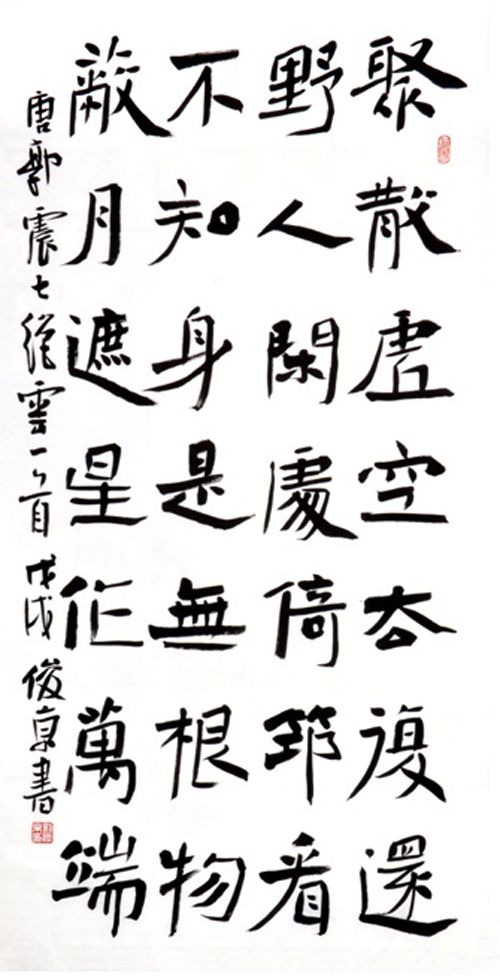 聚散虛空去復還
野人閑處倚筇看
不知身是無根物
蔽月遮星作萬端
唐郭震七絕雲一首戊戌俊京書